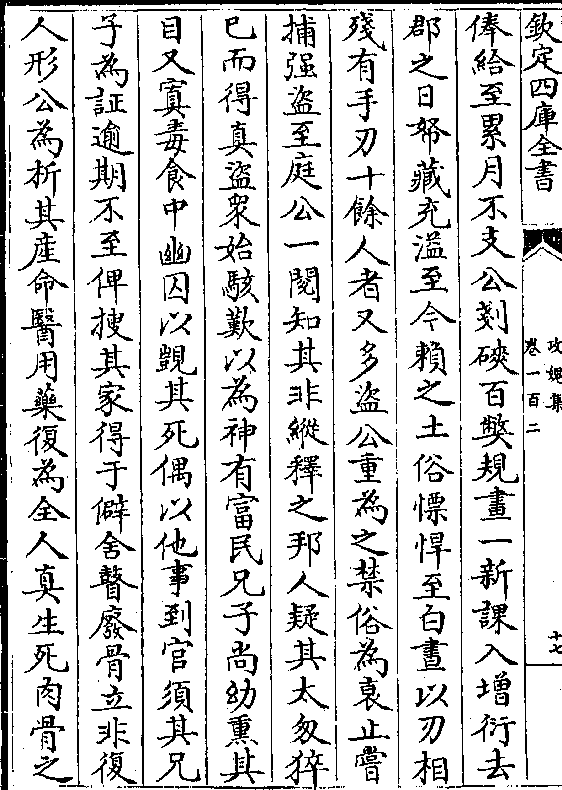 欽定四庫全書
攻媿集
卷一百二
十七
俸給至累月不支公剗硤百弊規畫一新課入增衍去
郡之日帑藏充溢至今賴之土俗慓悍至白晝以刃相
殘有手刃十餘人者又多盜公重為之禁俗為衰止嘗
捕强盜至庭公一閱知其非縱釋之邦人疑其太匆猝
已而得真盜衆始駭歎以為神有富民兄子尚幼熏其
目又寘毒食中幽囚以覬其死偶以他事到官須其兄
子為証逾期不至俾搜其家得于僻舍瞽廢骨立非復
人形公為析其產命醫用藥復為全人真生死肉骨之